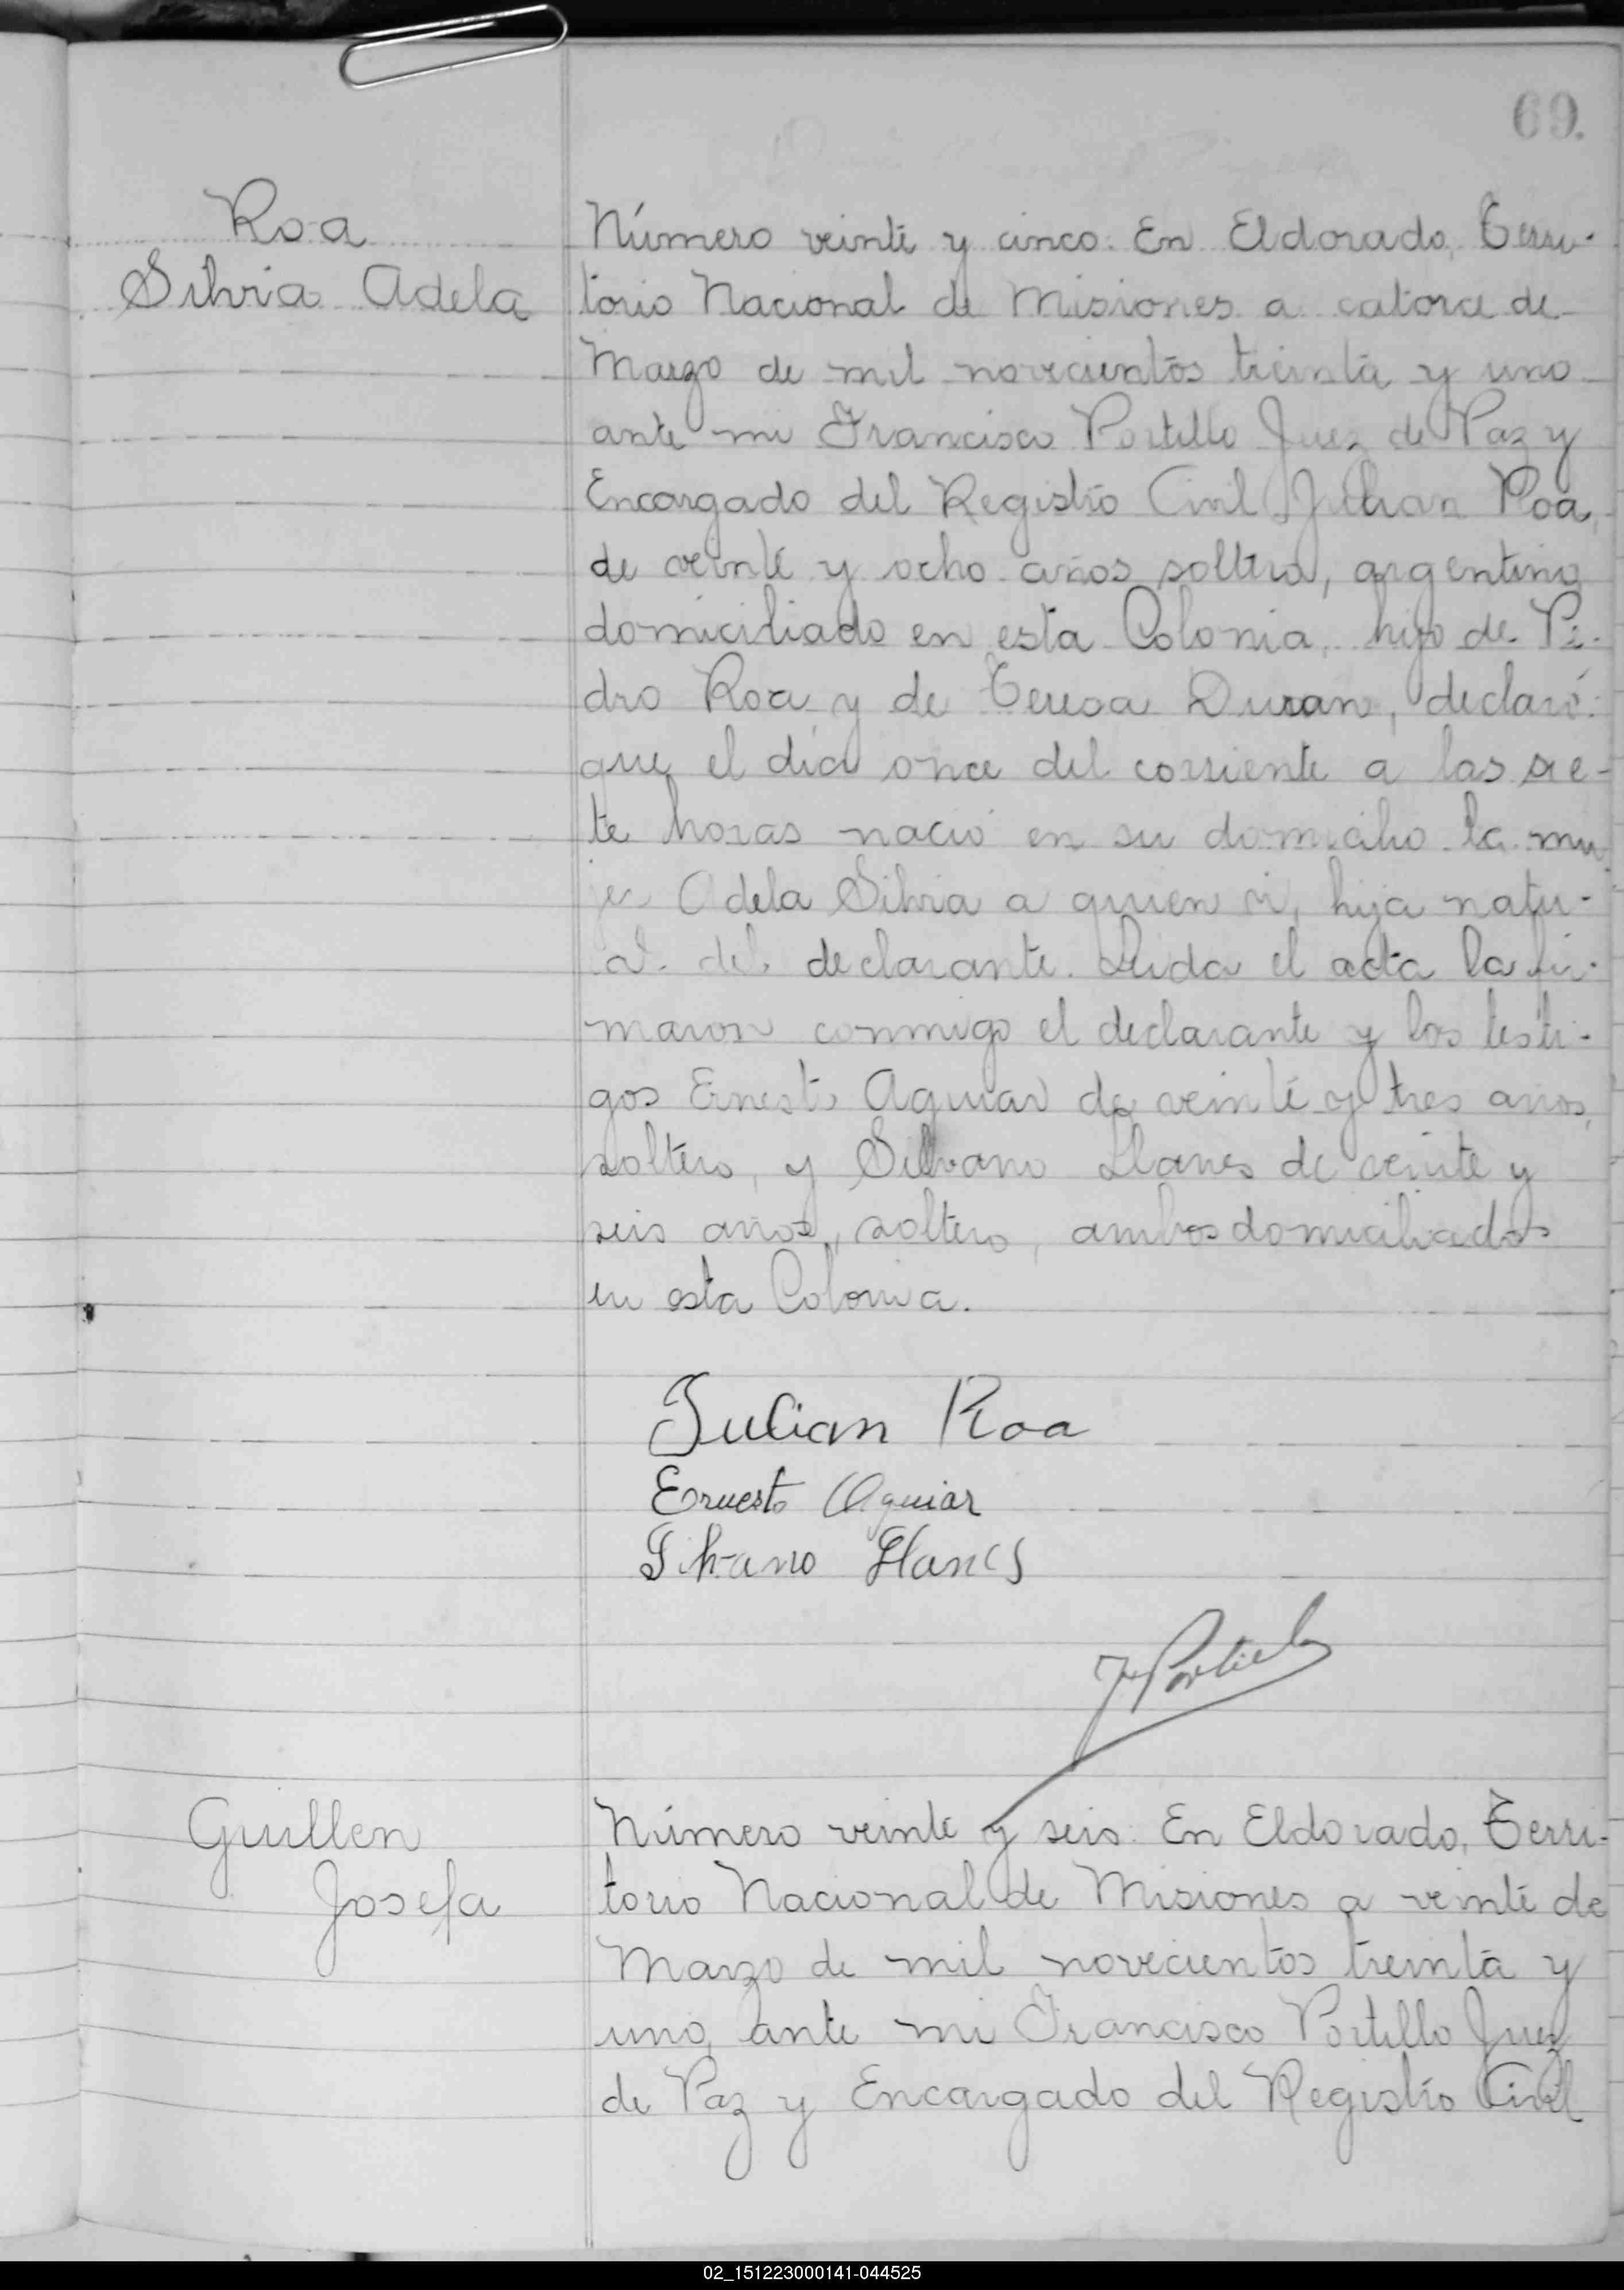 69.
Roa
Silvia Adela
Número veinte y cinco: En Eldorado, Terri-
torio Nacional de Misiones a catorce de
Marzo de mil novecientos treinta y uno
ante mi Francisco Portillo Juez de Paz y
Encargado del Registro Civil Julian Roa,
de veinte y ocho años soltero, argentino
domiciliado en esta Colonia, hijo de Pe-
dro Roa y de Teresa Duran, declaró:
que el día once del corriente a las sie-
te horas nació en su domicilio la mu
jer Adela Silvia a quien vi, hija natu-
al del declarante. Leida el acta la fir-
maron conmigo el declarante y los testi-
gos Ernesto Aguiar de veinte y tres años,
soltero, y Silvano Llanes de veinte y
seis años, soltero, ambos domiciliados
en esta Colonia.
Julian Roa
Ernesto Aguiar
Silvano Llanes
F Portillo
Guillen
Josefa
Número veinte y seis: En Eldorado, Terri-
torio Nacional de Misiones a veinte de
Marzo de mil novecientos treinta y
uno, ante mi Francisco Portillo Juez
de Paz y Encargado del Registro Civil
02_151223000141-044525